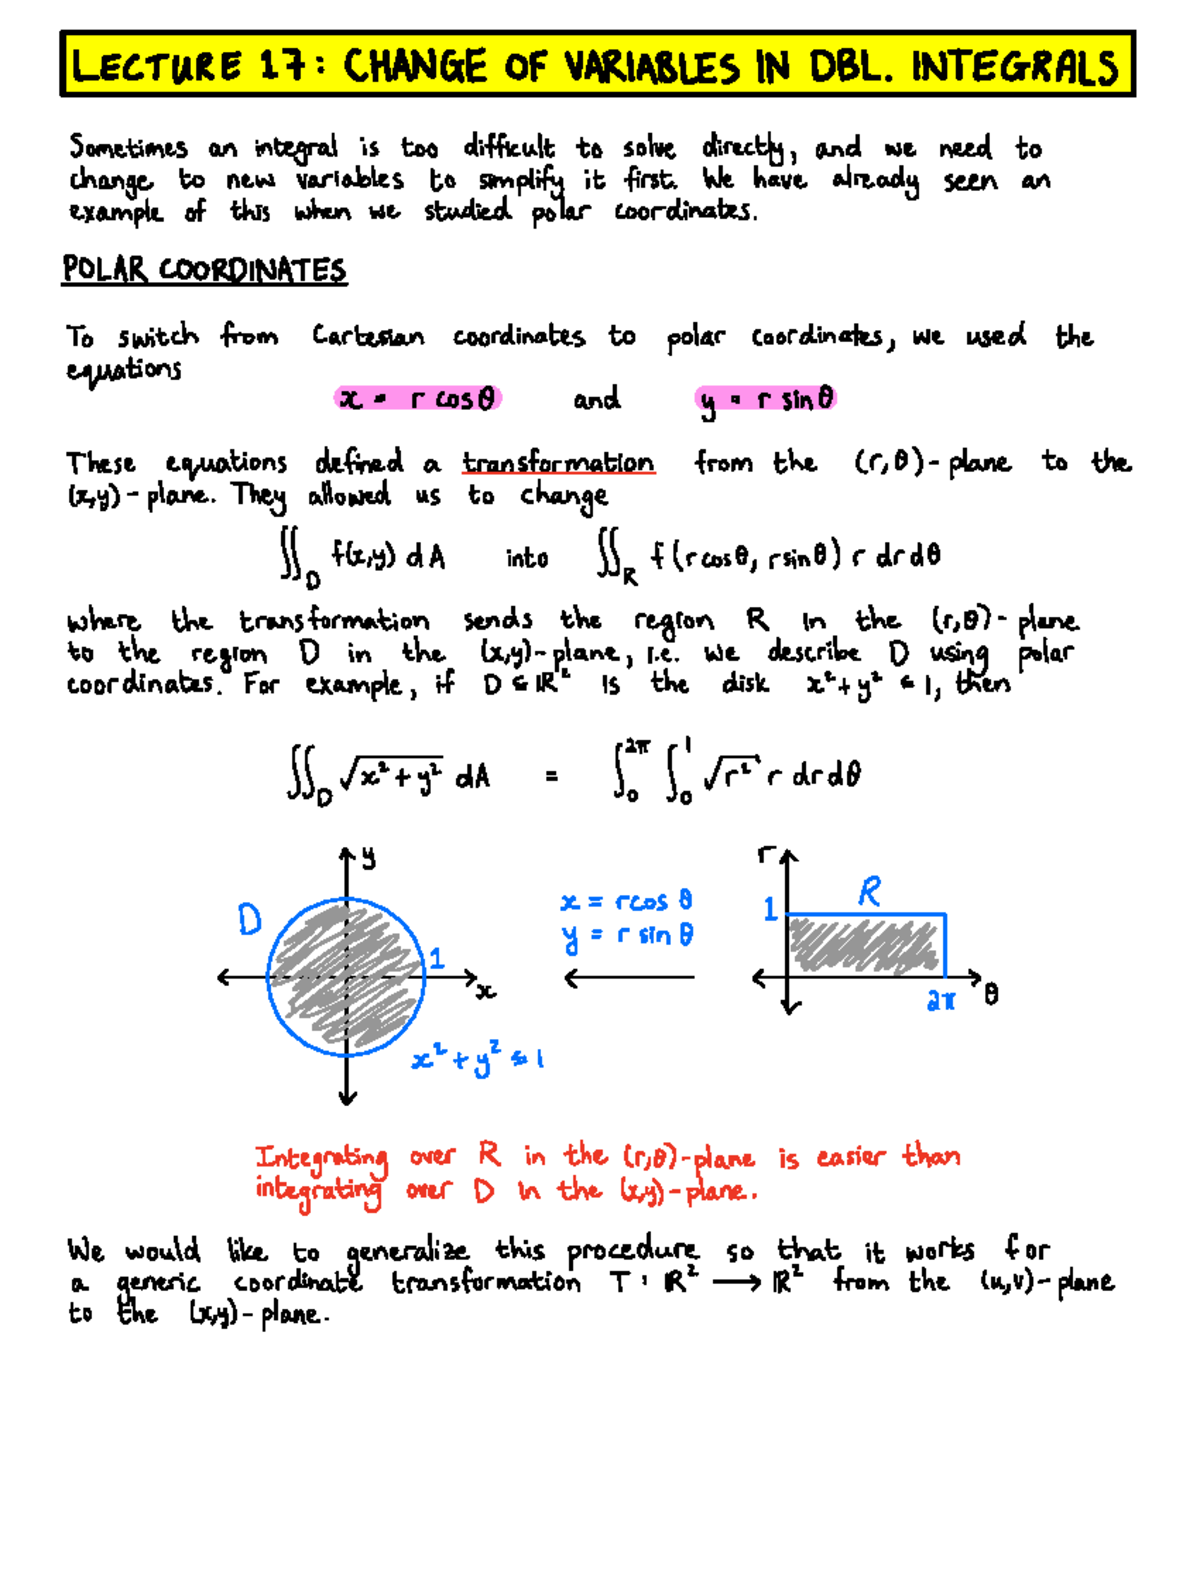 LECTURE 17: CHANGE OF VARIABLES IN DBL. INTEGRALS
Sometimes an integral is too difficult to solve directly, and we need to
change to new variables to simplify it first. We have already seen an
example of this when we studied polar coordinates.
POLAR COORDINATES
To switch from Cartesian coordinates to polar coordinates, we used the
equations
x = r cos θ and y = r sin θ
These equations defined a transformation from the (r,θ)-plane to the
(x,y)-plane. They allowed us to change
∬_D f(x,y) dA into ∬_R f(r cos θ, r sin θ) r dr dθ
where the transformation sends the region R in the (r,θ)-plane
to the region D in the (x,y)-plane, i.e. we describe D using polar
coordinates. For example, if D ⊆ ℝ² is the disk x² + y² ≤ 1, then
∬_D √(x² + y²) dA = ∫₀^{2π} ∫₀^1 √(r²) r dr dθ
y
D
1
x
x² + y² ≤ 1
x = r cos θ
y = r sin θ
r
1
R
2π
θ
Integrating over R in the (r,θ)-plane is easier than
integrating over D in the (x,y)-plane.
We would like to generalize this procedure so that it works for
a generic coordinate transformation T : ℝ² ⟶ ℝ² from the (u,v)-plane
to the (x,y)-plane.